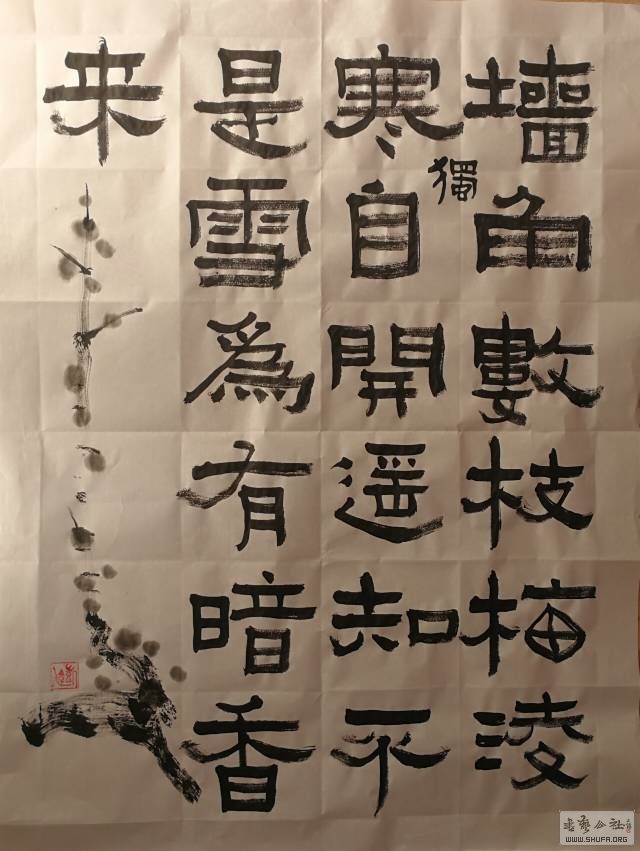 墻角數枝梅淩
寒獨自開遥知不
是雪爲有暗香
来
書藝公社
WWW.SHUFA.ORG